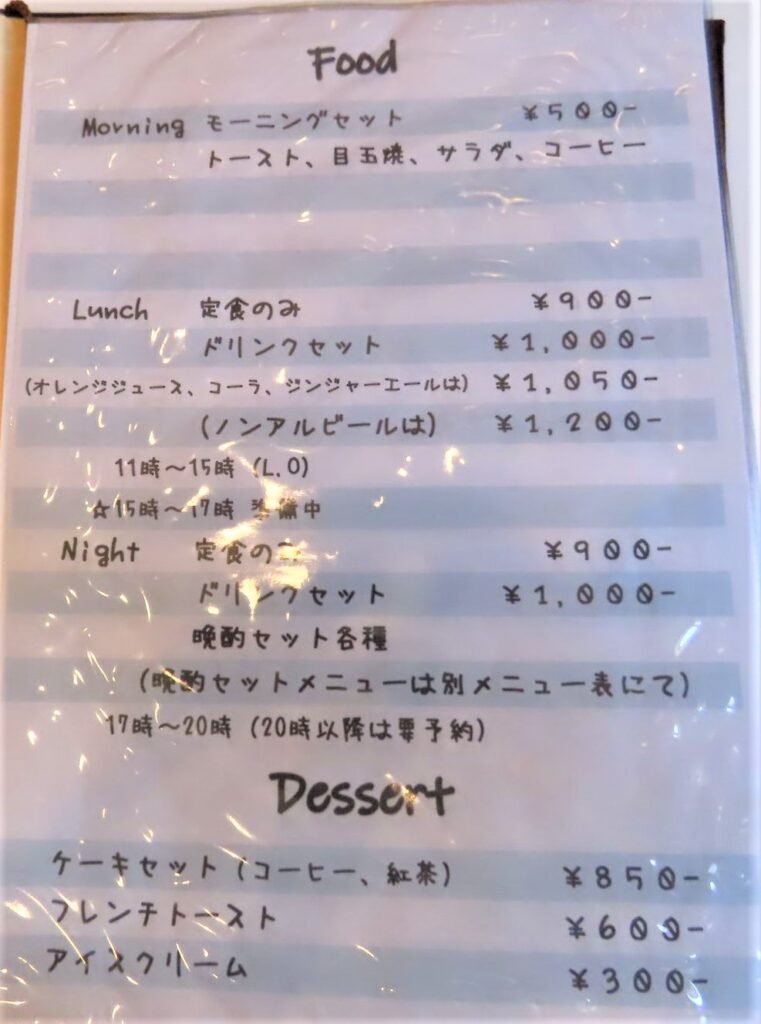 Food
Morning モーニングセット ¥500-
トースト、目玉焼、サラダ、コーヒー
Lunch 定食のみ ¥900-
ドリンクセット ¥1,000-
(オレンジジュース、コーラ、ジンジャーエールは) ¥1,050-
(ノンアルビールは) ¥1,200-
11時～15時 (L.O)
☆15時～17時 準備中
Night 定食のみ ¥900-
ドリンクセット ¥1,000-
晩酌セット各種
(晩酌セットメニューは別メニュー表にて)
17時～20時 (20時以降は要予約)
Dessert
ケーキセット (コーヒー、紅茶) ¥850-
フレンチトースト ¥600-
アイスクリーム ¥300-